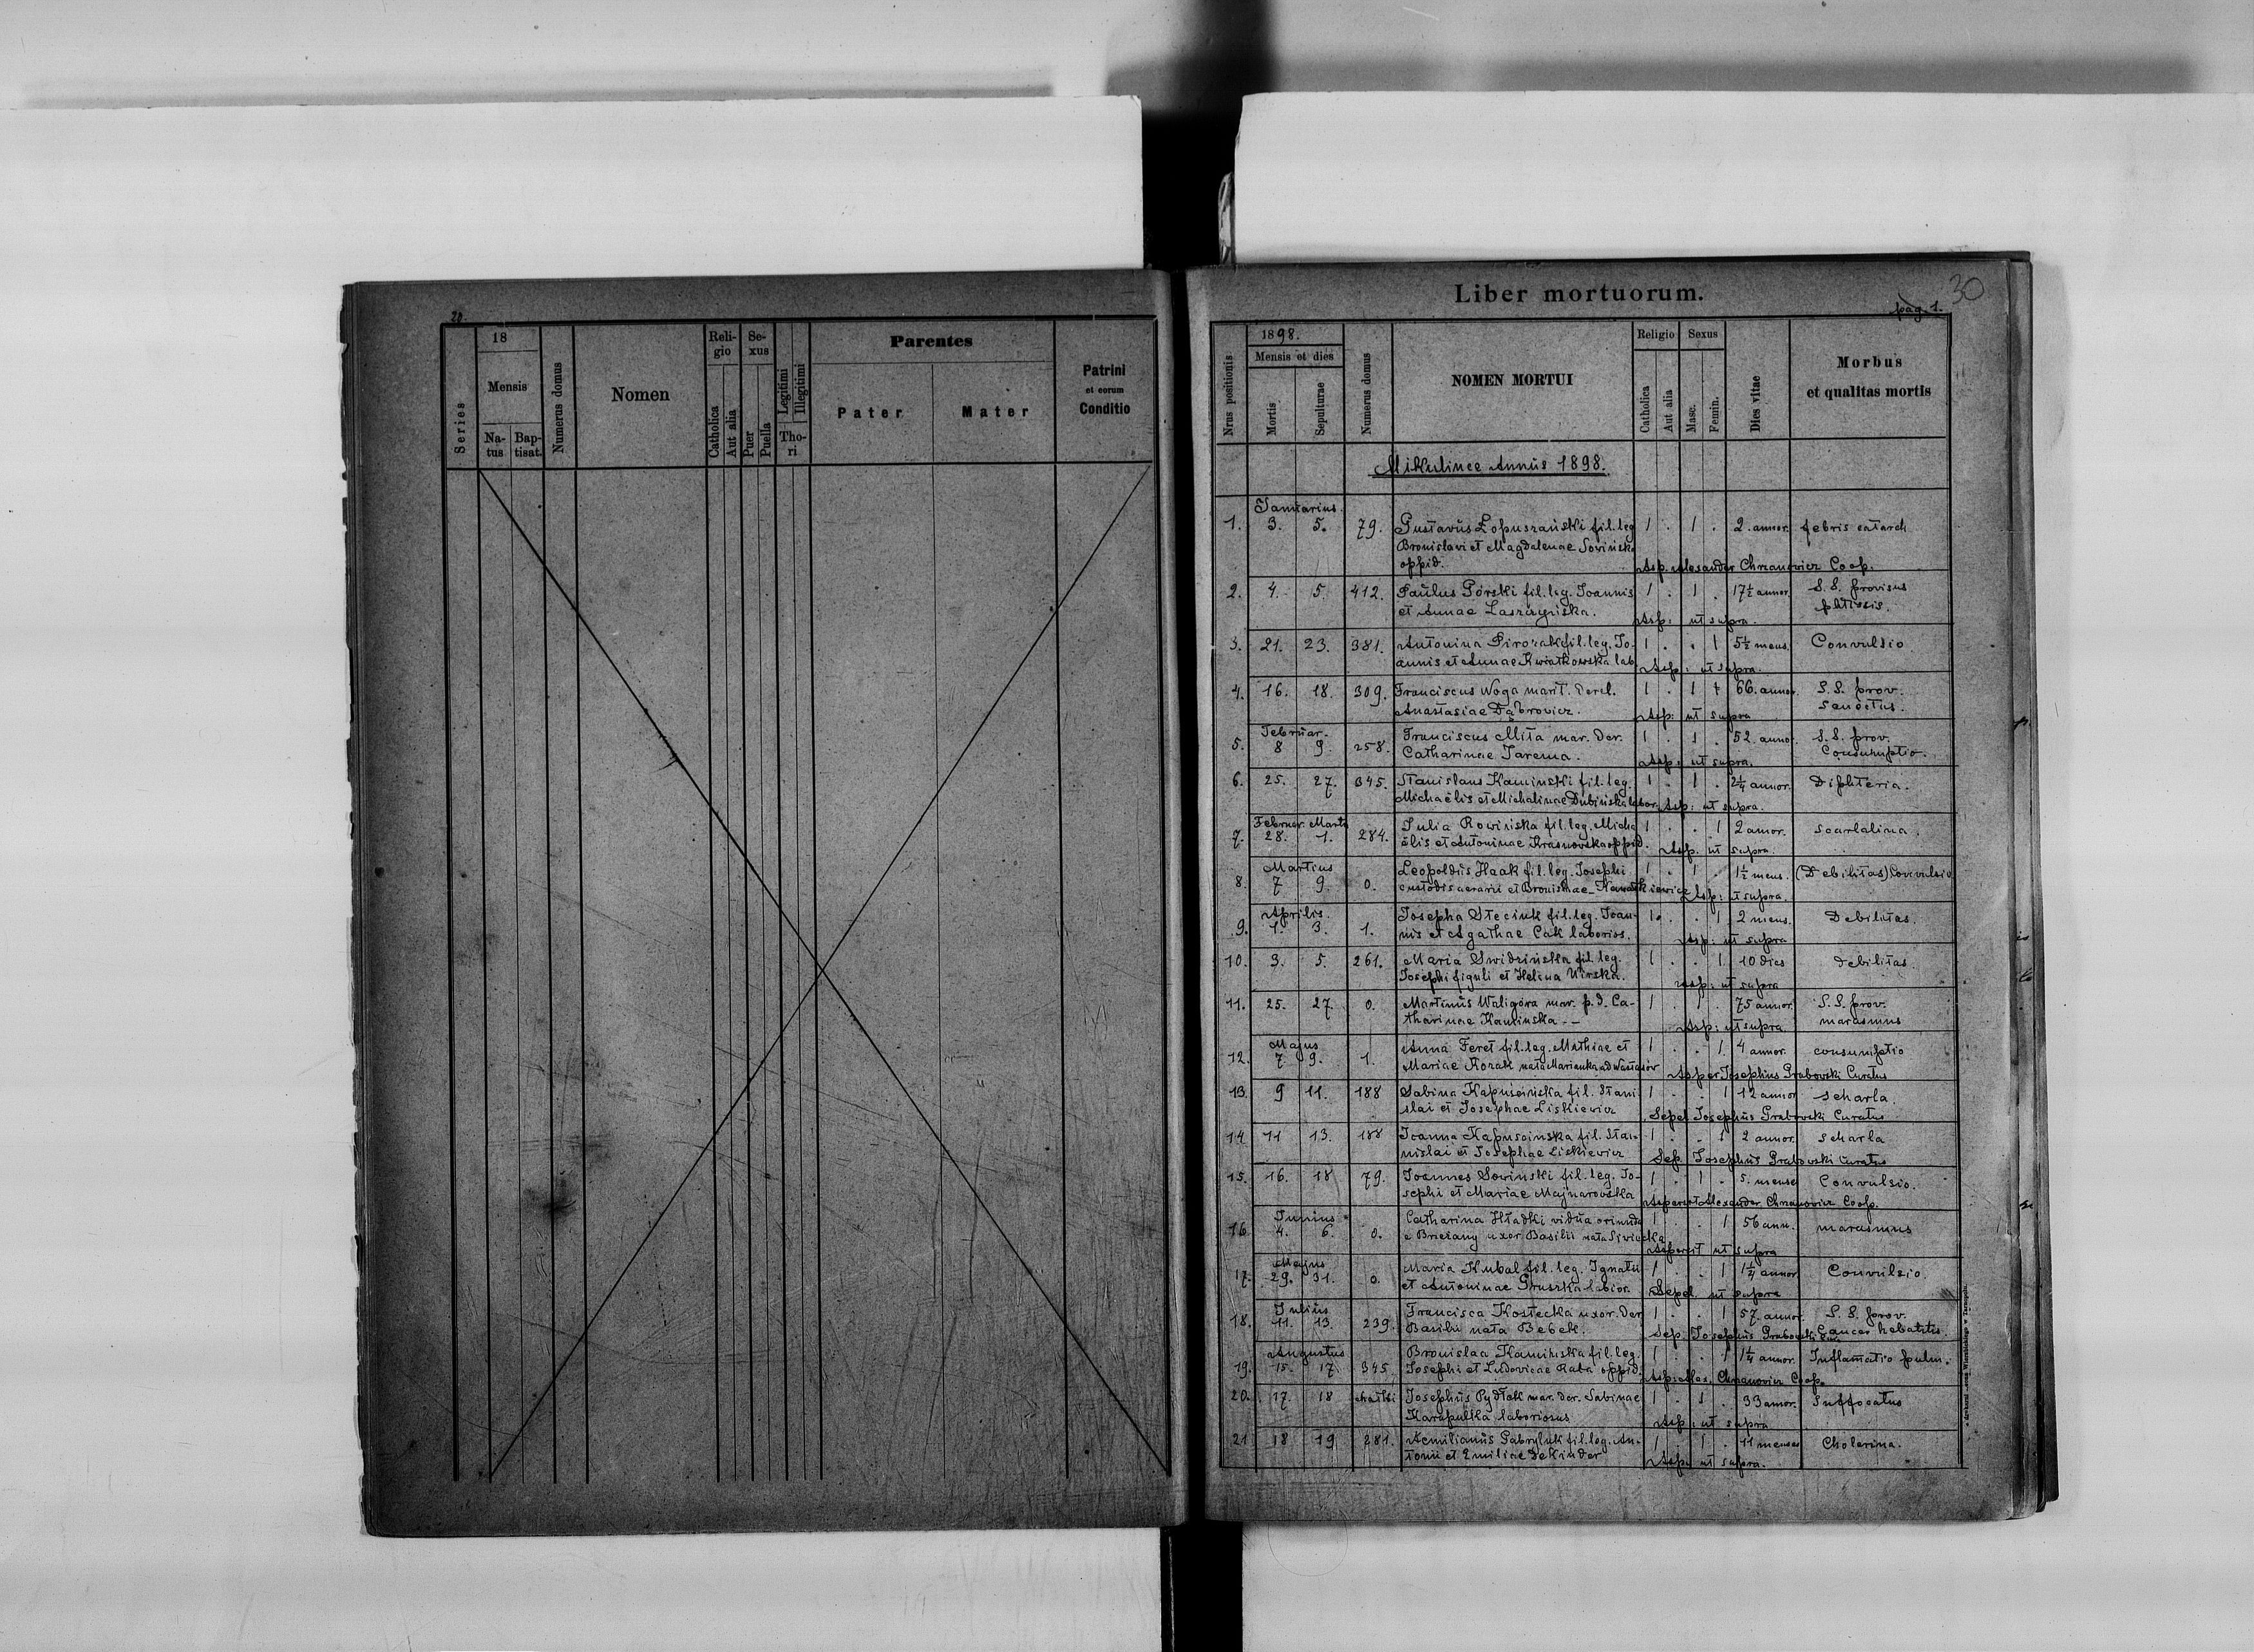 20.
18
Series
Mensis
Na-
tus
Bap-
tisat.
Numerus domus
Nomen
Reli-
gio
Catholica
Aut alia
Se-
xus
Puer
Puella
Legitimi
Illegitimi
Tho-
ri
Parentes
Pater
Mater
Patrini
et eorum
Conditio
Liber mortuorum.
30
pag. 1.
Nrus positionis
1898.
Mensis et dies
Mortis
Sepulturae
Numerus domus
NOMEN MORTUI
Religio
Catholica
Aut alia
Sexus
Masc.
Femin.
Dies vitae
Morbus
et qualitas mortis
Mikulince Annus 1898.
Januarius
1. 3. 5. 79. Gustavus Łopuszański fil. leg. 1 . 1 . 2. annor. febris catarch
Bronislavi et Magdalenae Sovińska
oppid. Asp. Alexander Chrzanovicz Coop.
2. 4. 5. 412. Paulus Górski fil. leg. Joannis 1 . 1 . 17½ annor. S.S. provisus
et Annae Laszczyńska. Asp: ut supra. phtissis.
3. 21. 23. 381. Antonina Pirozak fil. leg. Jo- 1 . . 1 5½ mens. Convulsio
annis et Annae Kwiatkowska lab. Asp: ut supra.
4. 16. 18. 309. Franciscus Woga marit. derel. 1 . 1 66. annor. S.S. prov.
Anastasiae Dąbrovicz. Asp: ut supra
Februar.
5. 8 9. 258. Franciscus Mita mar. der. 1 . 1 . 52. annor. S.S. prov.
Catharinae Jarema. Asp: ut supra. Consumptio.
6. 25. 27. 345. Stanislaus Kaminski fil. leg. 1 . 1 . 2¼ annor. Diphteria.
Michaëlis et Michalinae Dubińska labor. Asp: ut supra.
Februar. Marti
7. 28. 1. 284. Julia Rowińska fil. leg. Micha 1 . . 1 2 annor. scarlatina.
ëlis et Antoninae Krasnovska oppid. Asp. ut supra.
Martius
8. 7 9. 0. Leopoldus Haak fil. leg. Josephi 1 . 1 . 1½ mens. (Debilitas) Convulsio
custodis aerarii et Bronislae Asp: ut supra.
Aprilis.
9. 1. 3. 1. Josepha Steciuk fil. leg. Joan- 1 . . 1 2 mens. Debilitas.
nis et Agathae Cak laborios. Asp: ut supra
10. 3. 5. 261. Maria Swidzińska fil. leg. 1 . . 1. 10 dies debilitas.
Josephi figuli et Helena Wirska. Asp: ut supra
11. 25. 27. 0. Martinus Waligóra mar. p. d. Ca- 1 . 1 . 75 annor. S.S. prov.
tharinae Kaminska -- Asp: ut supra marasmus
Majus
12. 7 9. 1. Anna Feret fil. leg. Mathiae et 1 . . 1. 4 annor. consumptio
Mariae Kozak nata Asper. Josephus Grabovski Curatus
13. 9 11. 188 Sabina Kapuscinska fil. Stani- 1 . . 1 12 annor scharla.
slai et Josephae Liskiewicz Sepel. Josephus Grabovski Curatus
14 11 13. 188 Joanna Kapuscinska fil. Sta- 1 . . 1 2 annor. scharla
nislai et Josephae Liskiewicz Sep. Josephus Grabovski Curatus
15. 16. 18 79. Joannes Sovinski fil. leg. Jo- 1 . 1 . 5. mense Convulsio.
sephi et Mariae Majnarovska Aspersit Alexander Chrzanovicz Coop.
Junius
16. 4. 6. 0. Catharina Hładki vidua oriunda 1 . . 1 56 ann. marasmus
e Brzezany uxor Basilii nata Aspersit ut supra
Majus
17. 29. 31. 0. Maria Kubal fil. leg. Ignatii 1 . . 1 1¼ annor Convulsio.
et Antoninae Gruszka labior. Sepel. ut supra
Julius
18. 11. 13. 239. Francisca Kostecka uxor. der 1 . . 1 57. annor. S.S. prov.
Basilii nata Bebek. Sep. Josephus Grabovski Cur. Cancer hebatitis.
Augustus
19. 15. 17. 345. Bronislaa Kaminska fil. leg. 1 . . 1 1¼ annor. Inflamatio pulm.
Josephi et Ludovicae Raba oppid. Asp: Alex. Chrzanovicz Coop.
20. 17. 18 Josephus Pydłak mar. der. Sabinae 1 . 1 . 33 annor. Suffocatus
Karapulka laboriosus Asp: ut supra
21 18 19 281. Aemilianus Gabryluk fil. leg. An- 1 . 1 . 11 menses Cholerina.
tonii et Emiliae Dekinder Asp: ut supra.